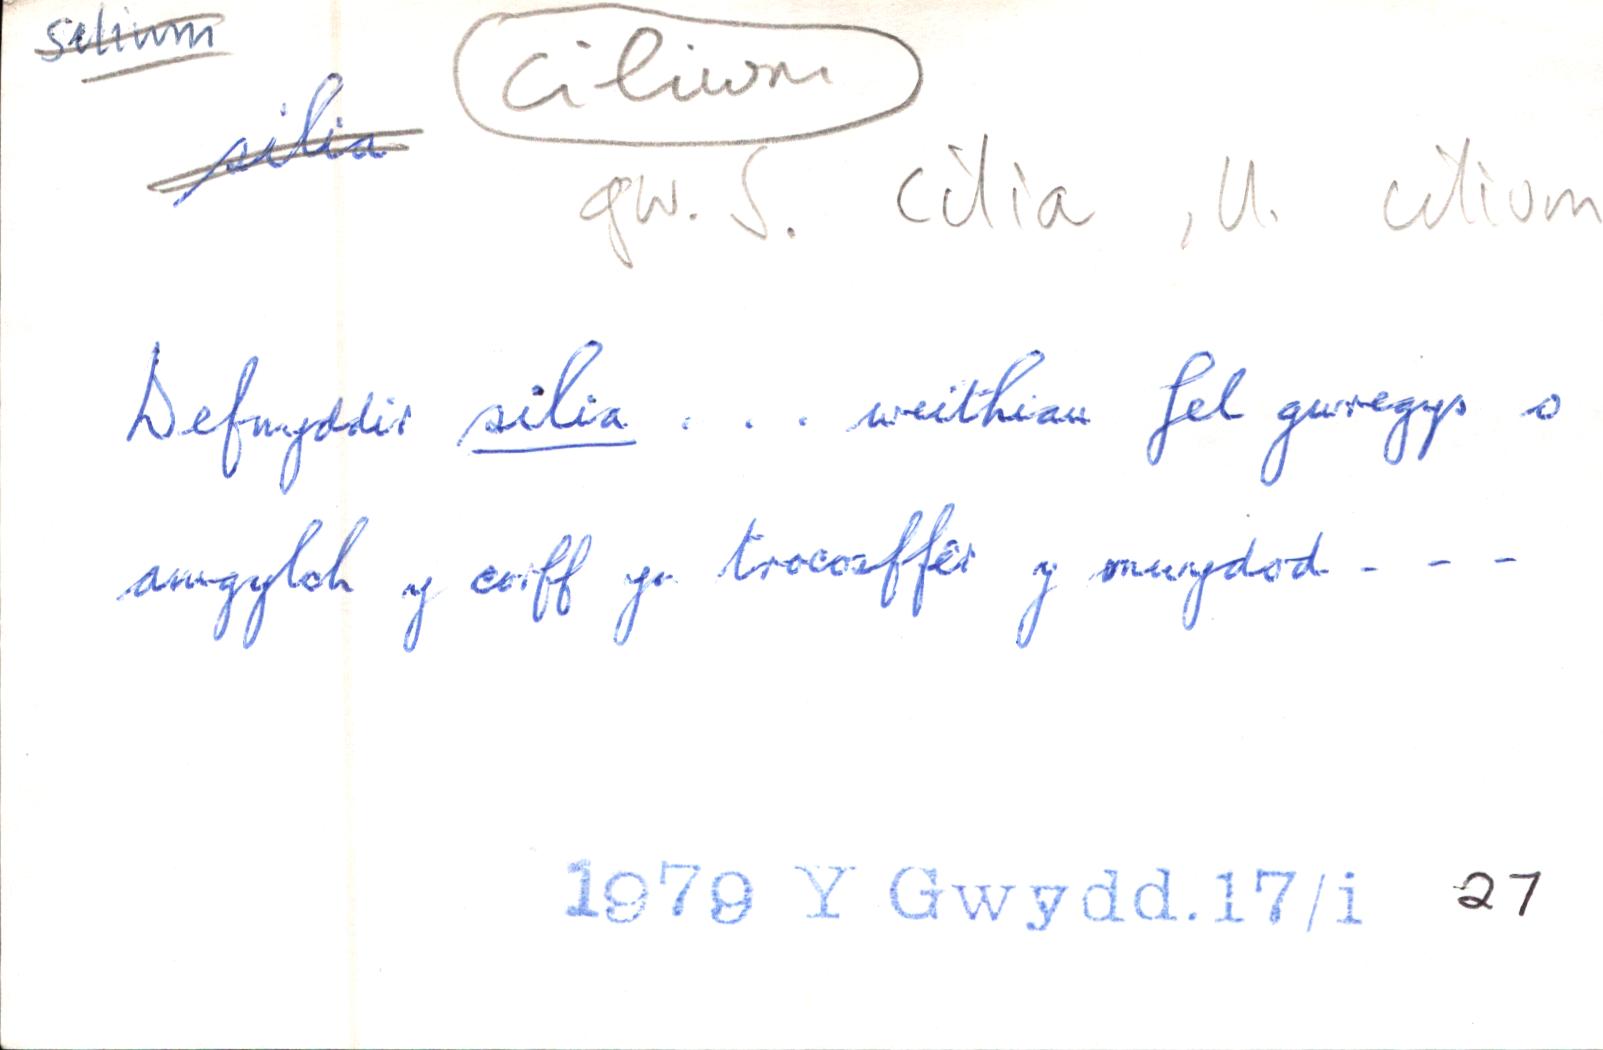 silium
silia
ciliwm
gw. S. cilia, U. cilium
Defnyddir silia . . . weithiau fel gwregys o
amgylch y corff yn trocosffêr y mwydod - - -
1979 Y Gwydd.17/i 27